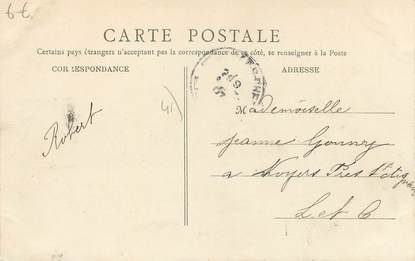 6 €
CARTE POSTALE
Certains pays étrangers n'acceptant pas la correspondance de ce côté, se renseigner à la Poste
CORRESPONDANCE
ADRESSE
41)
Robert
Mademoiselle
Jeanne
a Noyers Près St
L et C